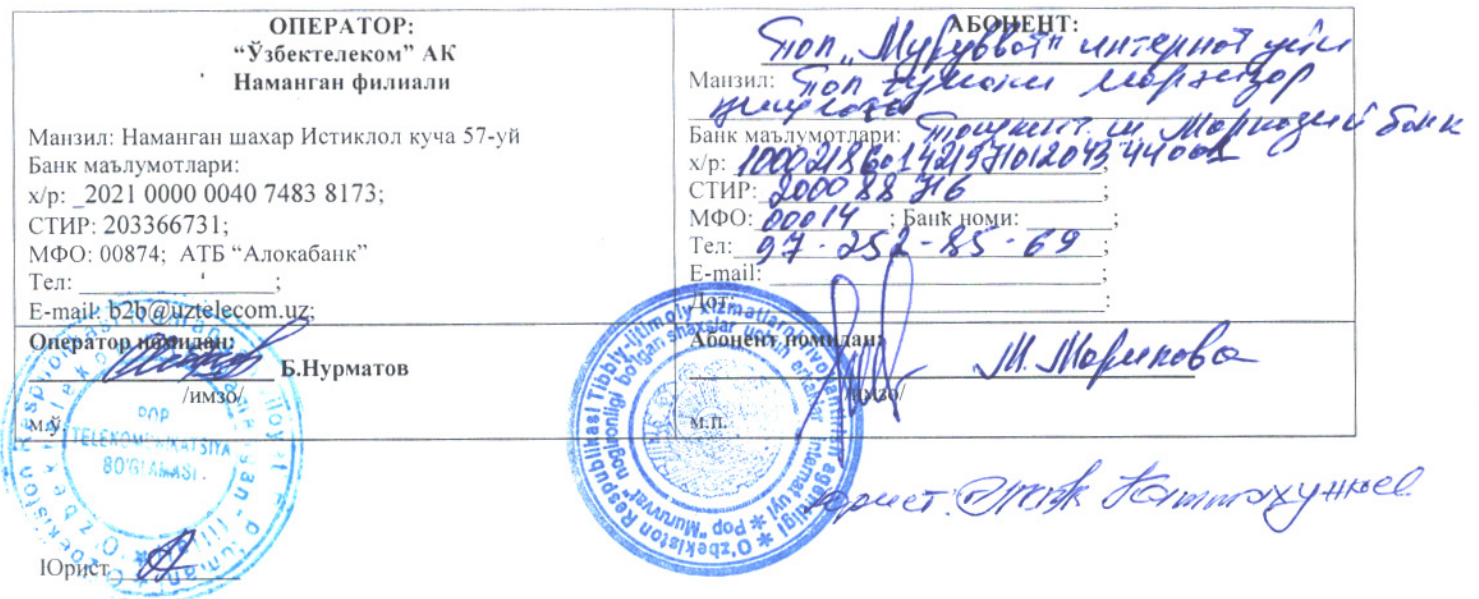 ОПЕРАТОР:
“Ўзбектелеком” АК
Наманган филиали
Манзил: Наманган шахар Истиклол куча 57-уй
Банк маълумотлари:
х/р: _2021 0000 0040 7483 8173;
СТИР: 203366731;
МФО: 00874; АТБ “Алокабанк”
Тел: ___________;
E-mail: b2b@uztelecom.uz;
Оператор номидан:
Б.Нурматов
/имзо/
м.ў.
POP
TELEKOMMUNIKATSIYA
BO'G'LAMASI
Юрист
АБОНЕНТ:
Поп „Мурувват" интернат уйи
Манзил: Поп тумани
Банк маълумотлари: Тошкент ш. Марказий банк
х/р:
СТИР: 2000 88 716;
МФО: 00014; Банк номи: ________;
Тел: 97-252-85-69;
E-mail: ________;
Дог: ________:
Абонент номидан:
М. Марипова
/имзо/
м.п.
O'zbekiston Respublikasi Tibbiy-ijtimoiy xizmatlarni rivojlantirish agentligi
Pop "Muruvvat" nogironligi bo'lgan shaxslar uchun erkaklar internat uyi
юрист: